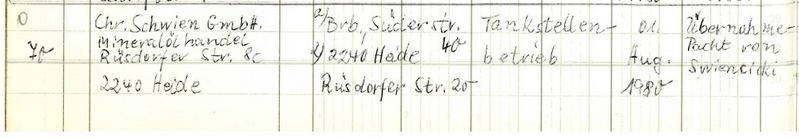 0 Chr. Schwien GmbH. 2/ Brb, Süderstr. 40 Tankstellen- 01. Übernahme-
70 Mineralölhandel 2/ 2240 Heide betrieb Aug. Pacht von
Rüsdorfer Str. 8c Rüsdorfer Str. 20 1980 Swiencicki
2240 Heide